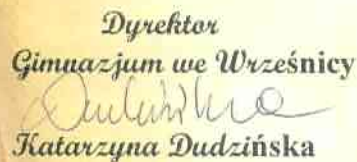 Dyrektor
Gimnazjum we Wrześnicy
Dudzińska
Katarzyna Dudzińska